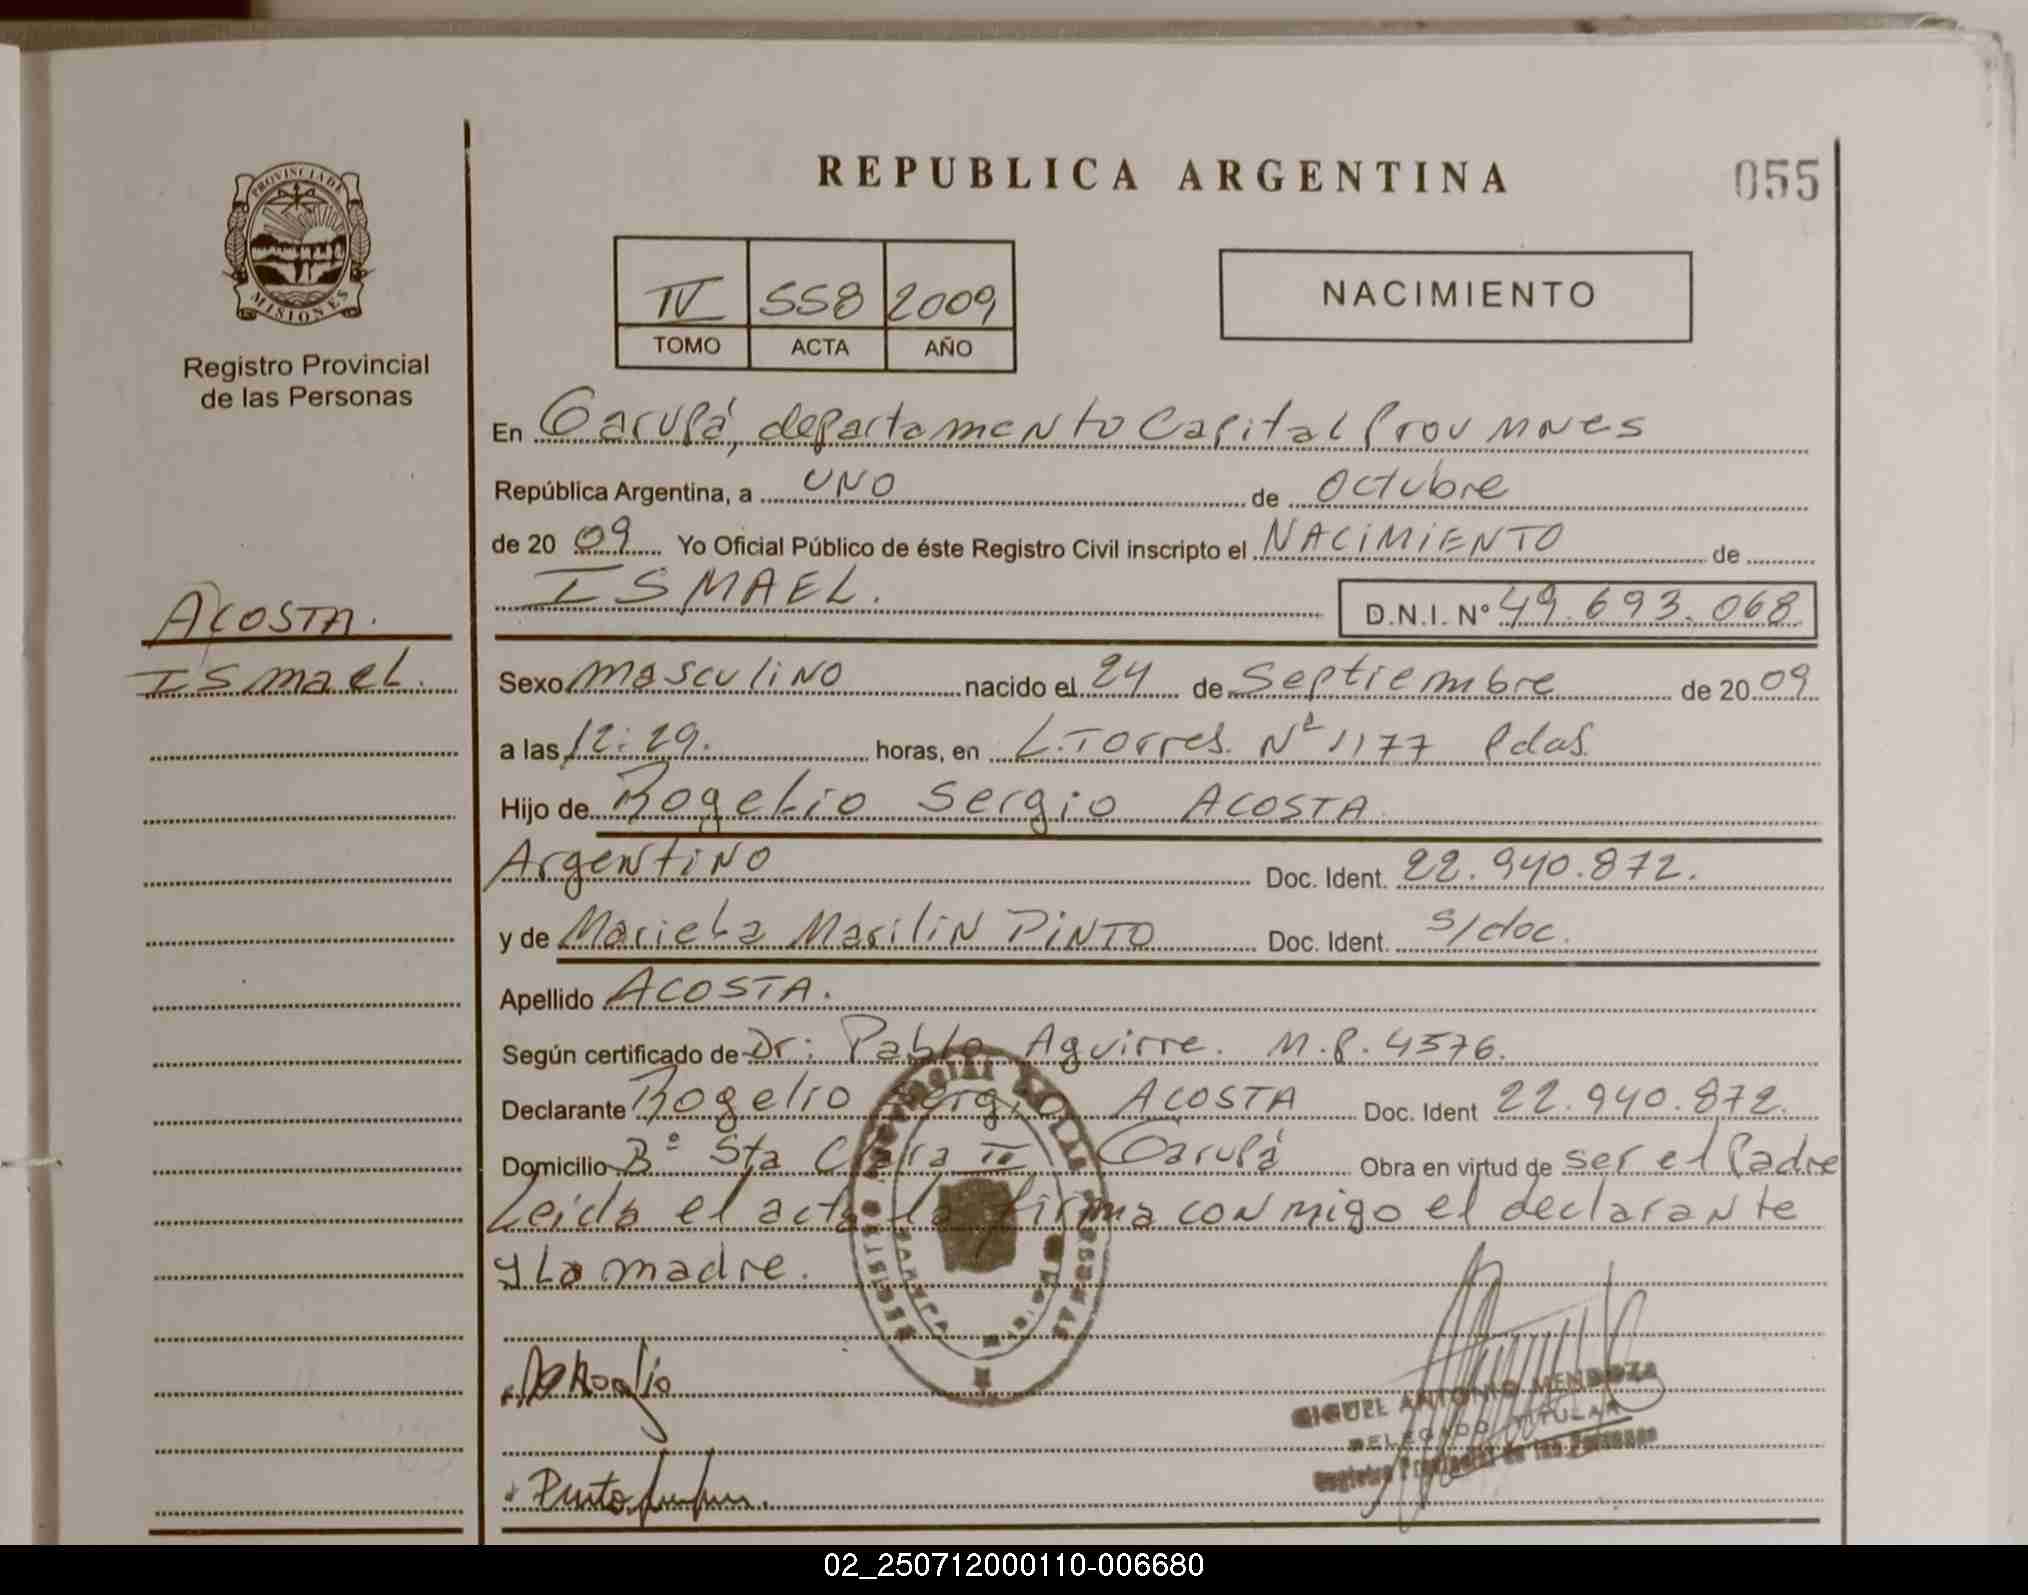 PROVINCIA DE
MISIONES
Registro Provincial
de las Personas
ACOSTA.
ISmael.
REPUBLICA ARGENTINA
055
IV 558 2009
TOMO ACTA AÑO
NACIMIENTO
En Garupá, departamento Capital Prov Mnes
República Argentina, a UNO de Octubre
de 20 09 Yo Oficial Público de éste Registro Civil inscripto el NACIMIENTO de
ISMAEL. D.N.I. Nº 49.693.068
Sexo masculino nacido el 24 de Septiembre de 20 09
a las 12:29. horas, en L. Torres. Nº 1177 Pdas.
Hijo de Rogelio Sergio ACOSTA
Argentino Doc. Ident. 22.940.872.
y de Mariela Marilin PINTO Doc. Ident. s/doc.
Apellido ACOSTA.
Según certificado de Dr: Pablo Aguirre. M.P. 4376.
Declarante Rogelio Sergio ACOSTA Doc. Ident 22.940.872.
Domicilio Bº Sta Clara II Garupá Obra en virtud de ser el Padre
Leida el acta la firma conmigo el declarante
y La madre.
Pinto
MIGUEL ANTONIO MENDOZA
DELEGADO TITULAR
Registro Provincial de las Personas
02_250712000110-006680